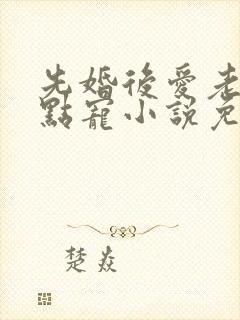 先婚後愛老
點寵小説免
楚焱